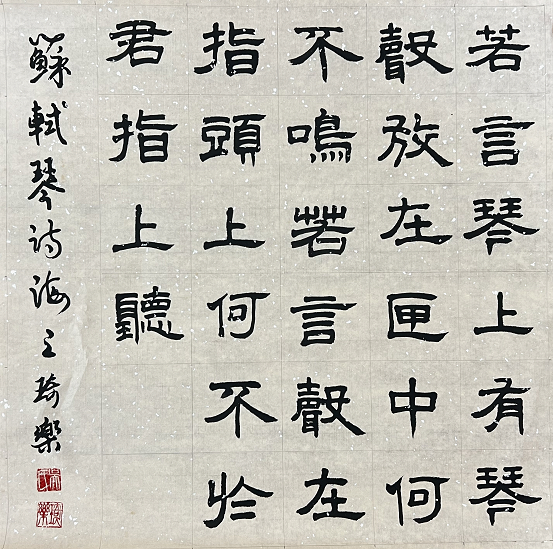 若言琴上有琴
聲放在匣中何
不鳴若言聲在
指頭上何不於
君指上聽
蘇軾琴诗海琦樂